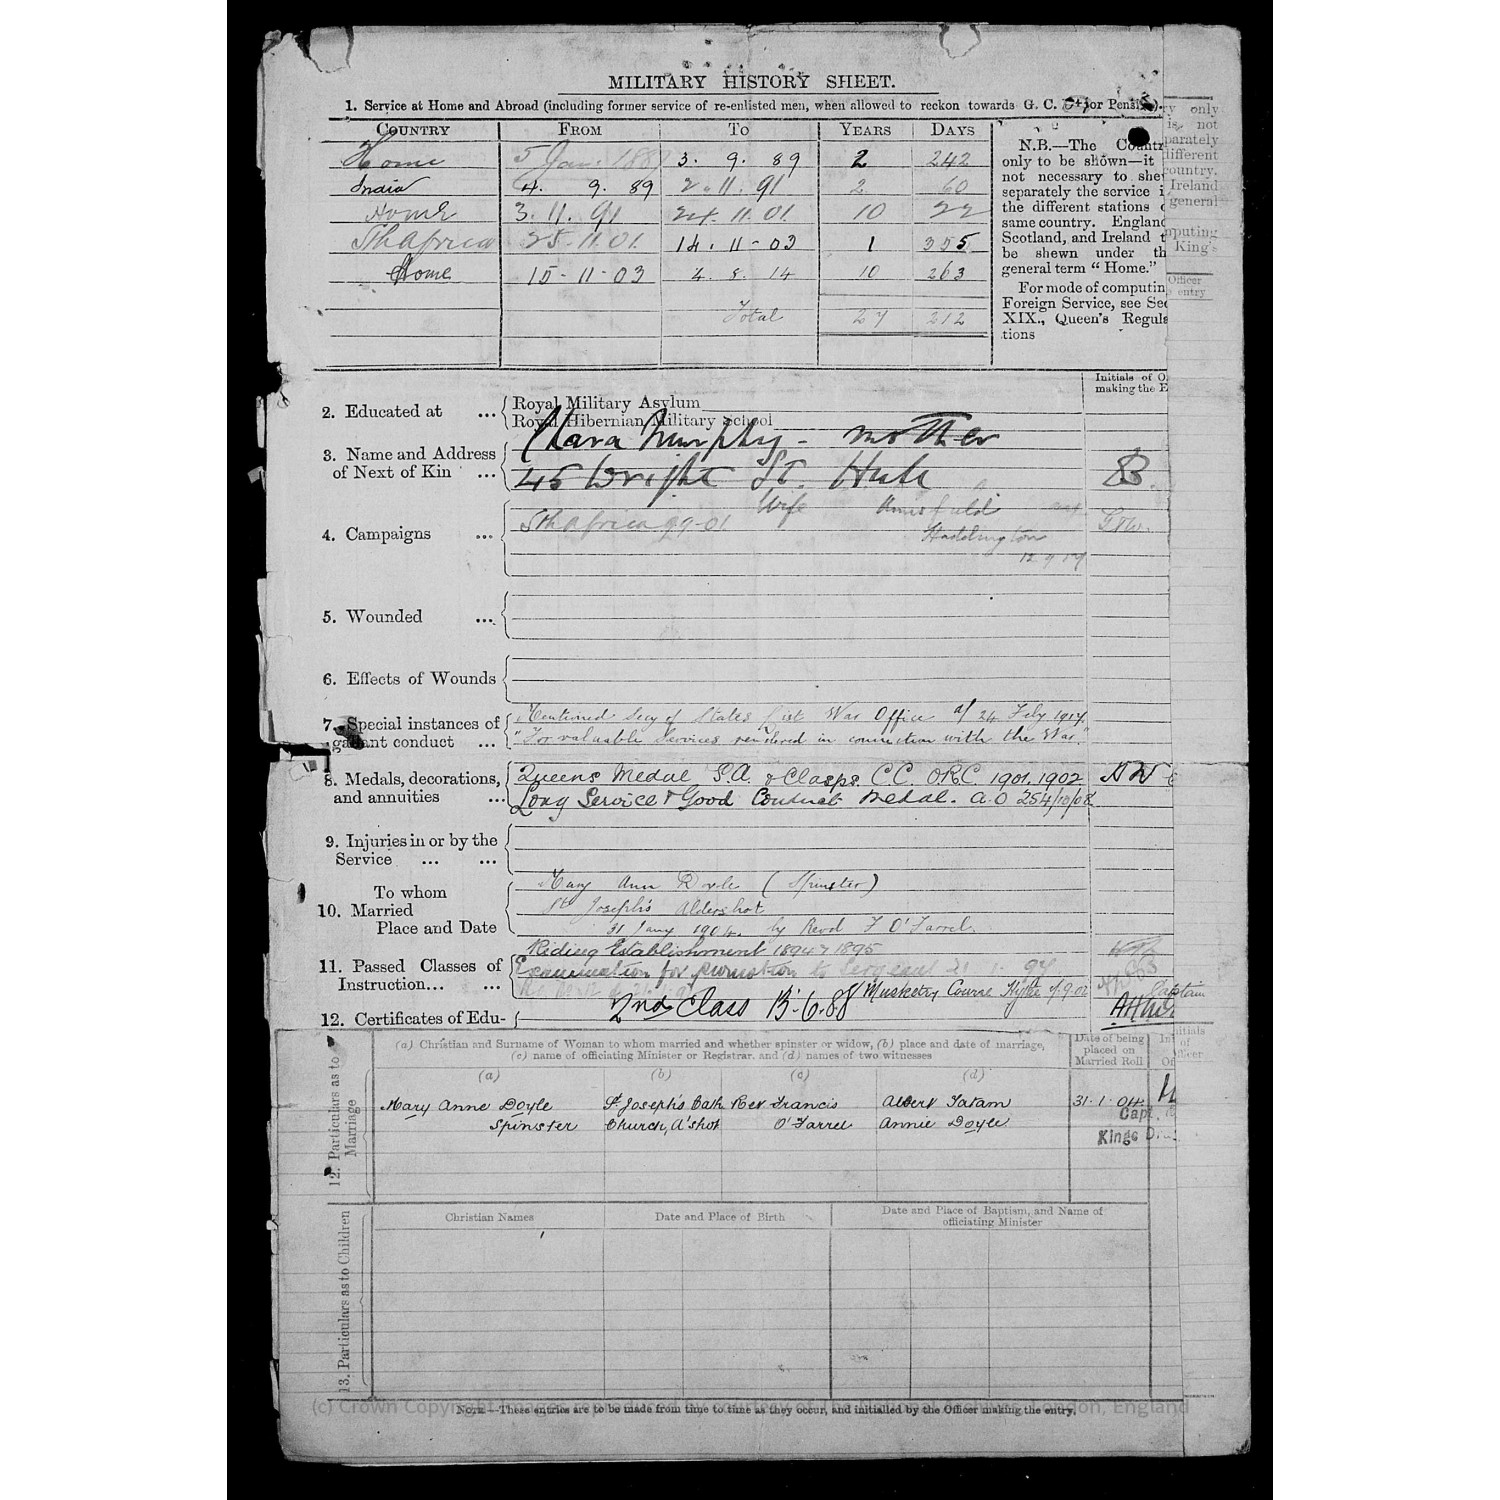 MILITARY HISTORY SHEET.
1. Service at Home and Abroad (including former service of re-enlisted men, when allowed to reckon towards G. C. or Pension).
COUNTRY FROM TO YEARS DAYS
Home 5 Jan. 1887 3. 9. 89 2 242
India 4. 9. 89 2. 11. 91 2 60
Home 3. 11. 91 24. 11. 01. 10 22
Sth Africa 25. 11. 01. 14. 11 - 03 1 355
Home 15 - 11 - 03 4. 8. 14 10 263
Total 27 212
N.B.—The Countr
only to be shown—it
not necessary to she
separately the service i
the different stations o
same country. England
Scotland, and Ireland t
be shewn under th
general term “ Home.”
For mode of computin
Foreign Service, see Sec
XIX., Queen's Regula
tions
ry only
is not
parately
different
country.
Ireland
general
mputing
King's
Officer
entry
Initials of O
making the E
2. Educated at ... Royal Military Asylum
Royal Hibernian Military School
3. Name and Address of Next of Kin ... Clara Murphy - mother
45 Wright St. Hull
Wife
Haddington
12 9 14
4. Campaigns ... Sth Africa 99-01.
5. Wounded ...
6. Effects of Wounds
7. Special instances of gallant conduct ... Mentioned Secy of States List War Office d/ 24 Feby 1917
"For valuable Services rendered in connection with the War."
8. Medals, decorations, and annuities ... Queens Medal S.A. & Clasps. C.C. O.R.C. 1901. 1902
Long Service & Good Conduct Medal. A.O 254/10/08
9. Injuries in or by the Service ... ...
10. To whom Married Place and Date Mary Ann Doyle (Spinster)
St Joseph's Aldershot
31 Jany 1904. by Revd F O'Farrel.
11. Passed Classes of Instruction... ... Riding Establishment 1894 & 1895
Examination for promotion to Sergeant 21. 1. 94
Musketry Course Hythe 4.9.02
Captain
12. Certificates of Edu- 2nd Class 13.6.88
12. Particulars as to Marriage
(a) Christian and Surname of Woman to whom married and whether spinster or widow, (b) place and date of marriage,
(c) name of officiating Minister or Registrar. and (d) names of two witnesses
Date of being placed on Married Roll
(a) (b) (c) (d)
Mary Anne Doyle St Joseph's Cath Rev Francis Albert Tatam 31. 1. 04.
Spinster Church, A'shot O'Farrel Annie Doyle
Capt.
Kings
13. Particulars as to Children
Christian Names Date and Place of Birth Date and Place of Baptism, and Name of officiating Minister
NOTE—These entries are to be made from time to time as they occur, and initialled by the Officer making the entry.
(c) Crown Copyright images reproduced by courtesy of The National Archives, London, England